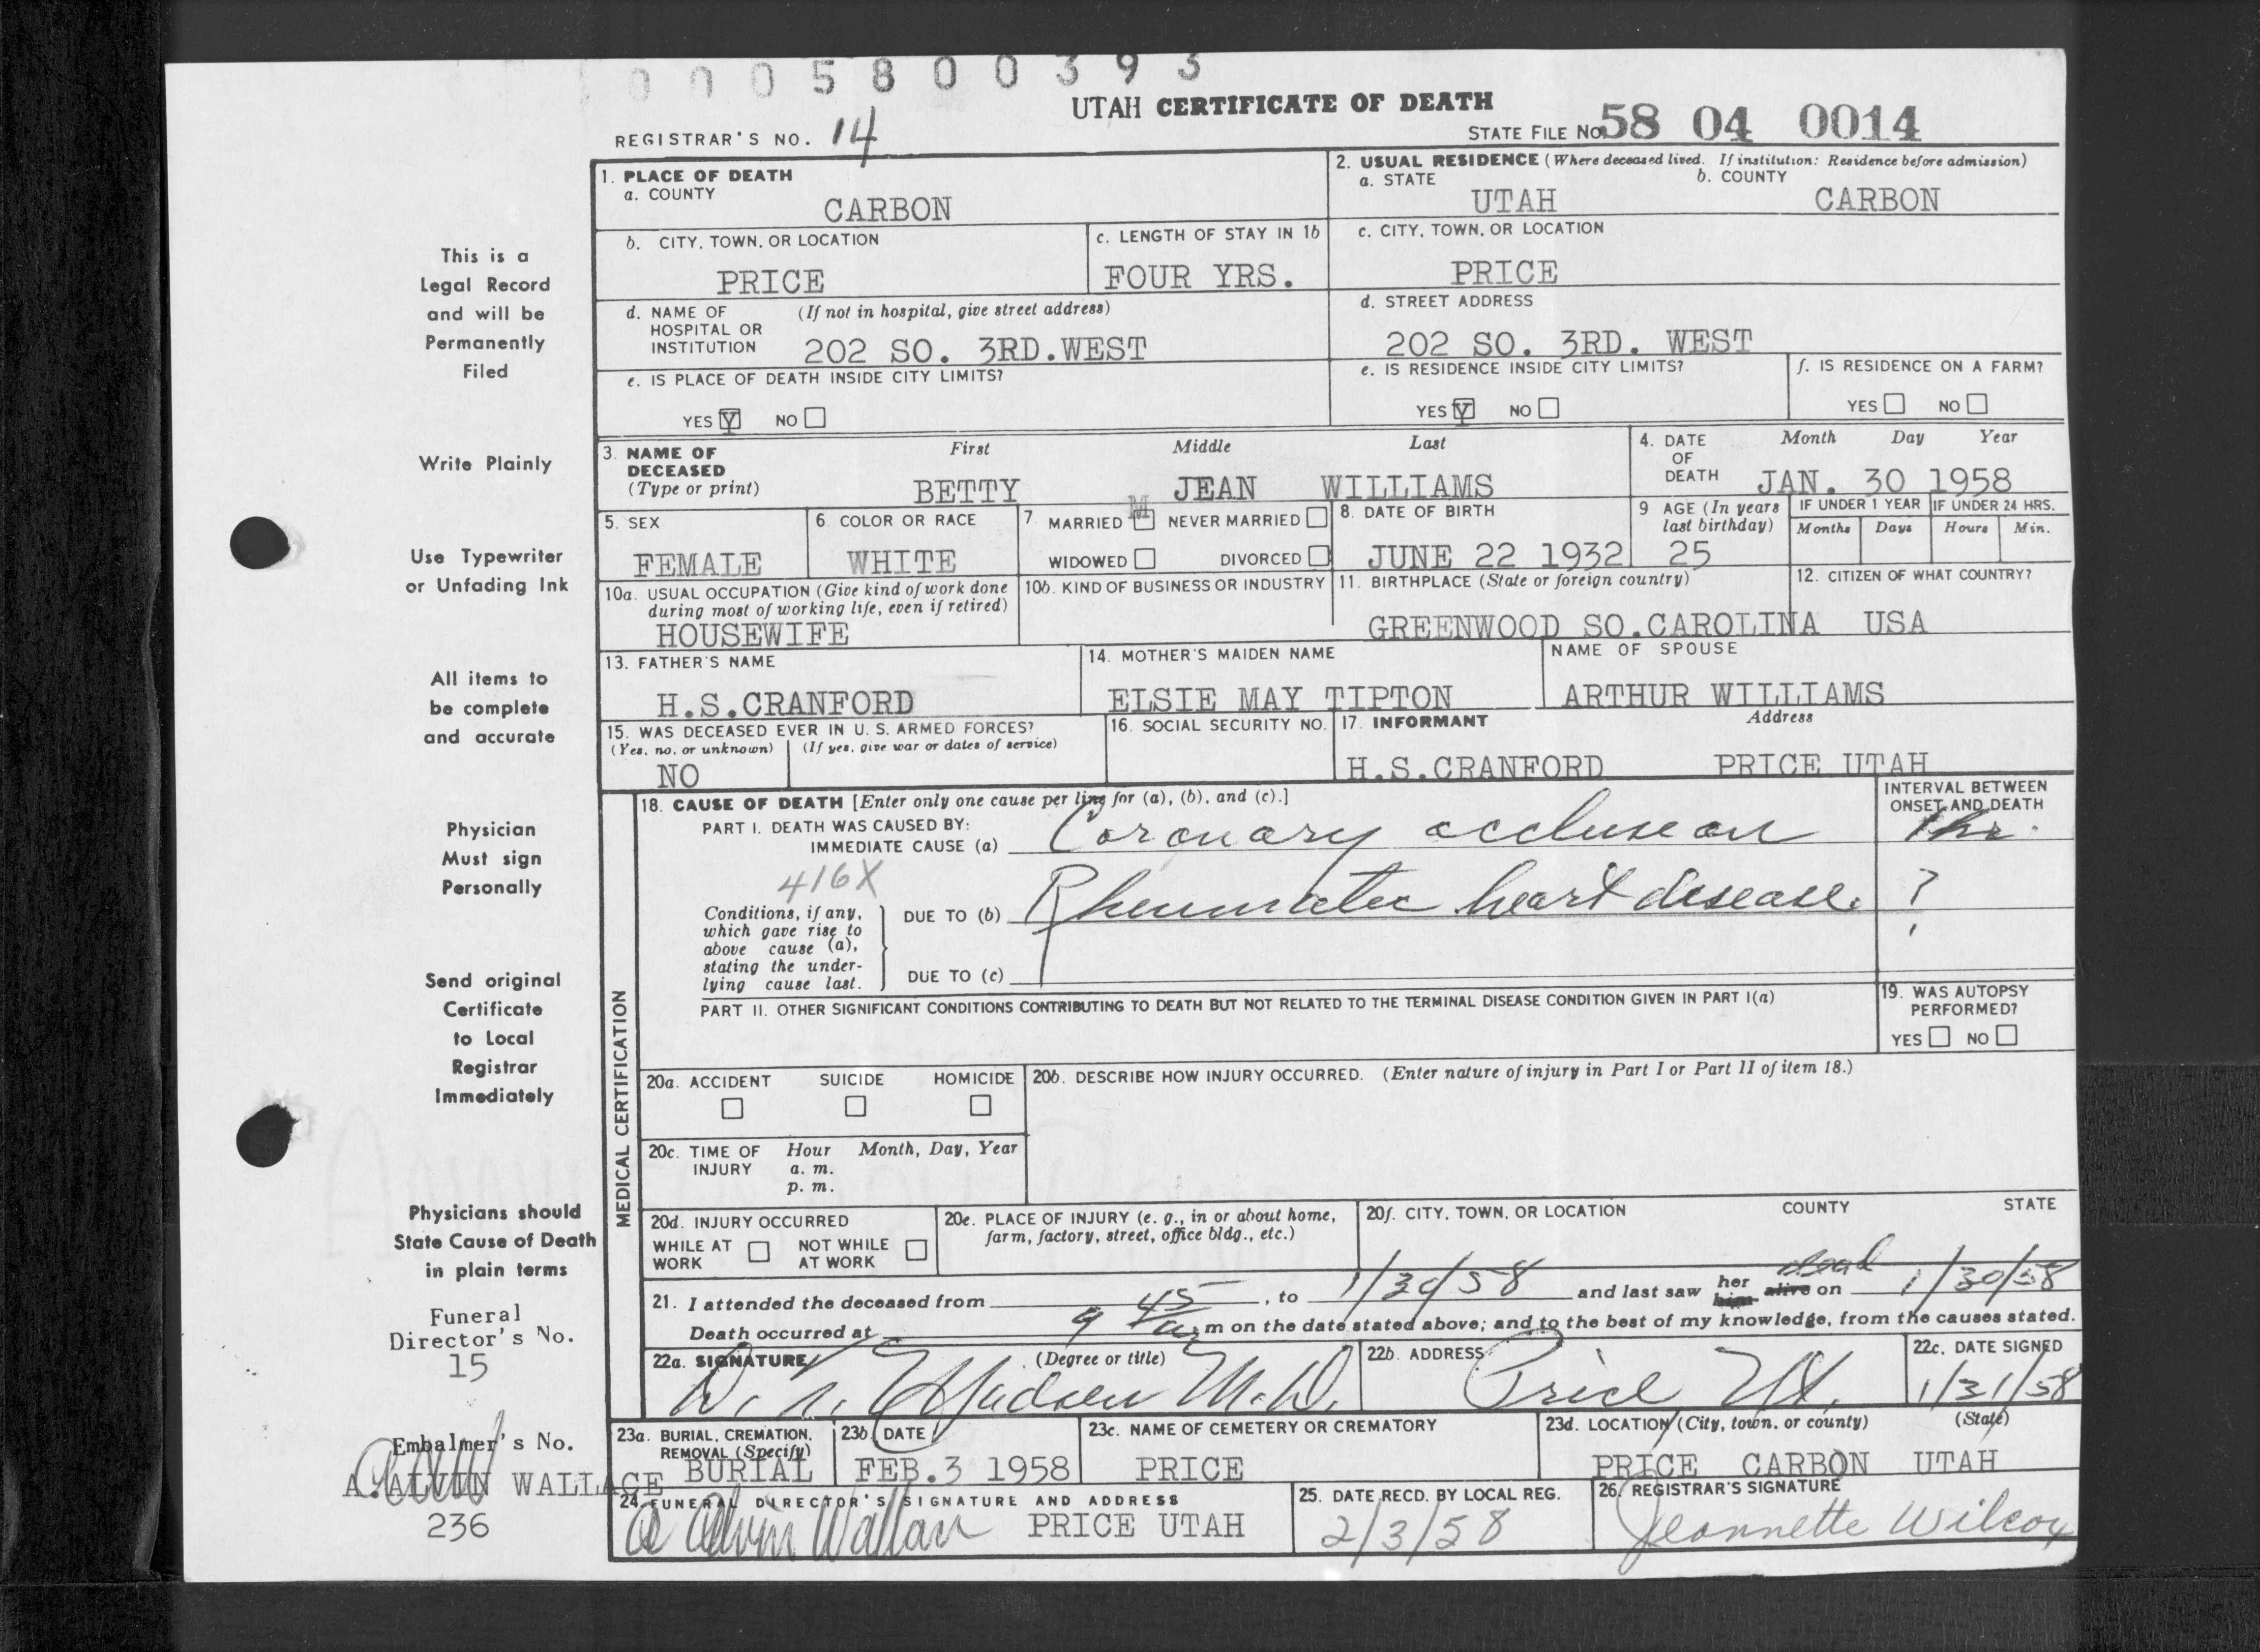 0005800393
UTAH CERTIFICATE OF DEATH
REGISTRAR'S NO. 14
STATE FILE NO. 58 04 0014
1. PLACE OF DEATH
a. COUNTY
CARBON
2. USUAL RESIDENCE (Where deceased lived. If institution: Residence before admission)
a. STATE b. COUNTY
UTAH CARBON
b. CITY, TOWN, OR LOCATION
PRICE
c. LENGTH OF STAY IN 1b
FOUR YRS.
c. CITY, TOWN, OR LOCATION
PRICE
d. NAME OF HOSPITAL OR INSTITUTION (If not in hospital, give street address)
202 SO. 3RD.WEST
d. STREET ADDRESS
202 SO. 3RD. WEST
e. IS PLACE OF DEATH INSIDE CITY LIMITS?
YES Y NO
e. IS RESIDENCE INSIDE CITY LIMITS?
YES Y NO
f. IS RESIDENCE ON A FARM?
YES NO
3. NAME OF DECEASED (Type or print)
First Middle Last
BETTY JEAN WILLIAMS
4. DATE OF DEATH
Month Day Year
JAN. 30 1958
5. SEX
FEMALE
6. COLOR OR RACE
WHITE
7. MARRIED M NEVER MARRIED
WIDOWED DIVORCED
8. DATE OF BIRTH
JUNE 22 1932
9 AGE (In years last birthday)
25
IF UNDER 1 YEAR IF UNDER 24 HRS.
Months Days Hours Min.
10a. USUAL OCCUPATION (Give kind of work done during most of working life, even if retired)
HOUSEWIFE
10b. KIND OF BUSINESS OR INDUSTRY
11. BIRTHPLACE (State or foreign country)
GREENWOOD SO.CAROLINA
12. CITIZEN OF WHAT COUNTRY?
USA
13. FATHER'S NAME
H.S.CRANFORD
14. MOTHER'S MAIDEN NAME
ELSIE MAY TIPTON
NAME OF SPOUSE
ARTHUR WILLIAMS
15. WAS DECEASED EVER IN U. S. ARMED FORCES?
(Yes, no, or unknown) (If yes, give war or dates of service)
NO
16. SOCIAL SECURITY NO.
17. INFORMANT Address
H.S.CRANFORD PRICE UTAH
MEDICAL CERTIFICATION
18. CAUSE OF DEATH [Enter only one cause per line for (a), (b), and (c).]
INTERVAL BETWEEN ONSET AND DEATH
PART I. DEATH WAS CAUSED BY:
IMMEDIATE CAUSE (a) Coronary occlusion 1 hr.
416X
Conditions, if any, which gave rise to above cause (a), stating the underlying cause last.
DUE TO (b) Rheumatic heart disease. ?
DUE TO (c)
PART II. OTHER SIGNIFICANT CONDITIONS CONTRIBUTING TO DEATH BUT NOT RELATED TO THE TERMINAL DISEASE CONDITION GIVEN IN PART I(a)
19. WAS AUTOPSY PERFORMED?
YES NO
20a. ACCIDENT SUICIDE HOMICIDE
20b. DESCRIBE HOW INJURY OCCURRED. (Enter nature of injury in Part I or Part II of item 18.)
20c. TIME OF INJURY Hour Month, Day, Year
a. m.
p. m.
20d. INJURY OCCURRED
WHILE AT WORK NOT WHILE AT WORK
20e. PLACE OF INJURY (e. g., in or about home, farm, factory, street, office bldg., etc.)
20f. CITY, TOWN, OR LOCATION COUNTY STATE
21. I attended the deceased from , to 1/30/58 and last saw her him alive dead on 1/30/58
Death occurred at 9 45 a. m on the date stated above; and to the best of my knowledge, from the causes stated.
22a. SIGNATURE (Degree or title)
M.D.
22b. ADDRESS
Price Ut.
22c. DATE SIGNED
1/31/58
23a. BURIAL, CREMATION, REMOVAL (Specify)
BURIAL
23b. DATE
FEB.3 1958
23c. NAME OF CEMETERY OR CREMATORY
PRICE
23d. LOCATION (City, town, or county) (State)
PRICE CARBON UTAH
24. FUNERAL DIRECTOR'S SIGNATURE AND ADDRESS
A Alvin Wallace PRICE UTAH
25. DATE RECD. BY LOCAL REG.
2/3/58
26. REGISTRAR'S SIGNATURE
Jeannette Wilcox
This is a
Legal Record
and will be
Permanently
Filed
Write Plainly
Use Typewriter
or Unfading Ink
All items to
be complete
and accurate
Physician
Must sign
Personally
Send original
Certificate
to Local
Registrar
Immediately
Physicians should
State Cause of Death
in plain terms
Funeral
Director's No.
15
Embalmer's No.
A.ALVIN WALLACE
236